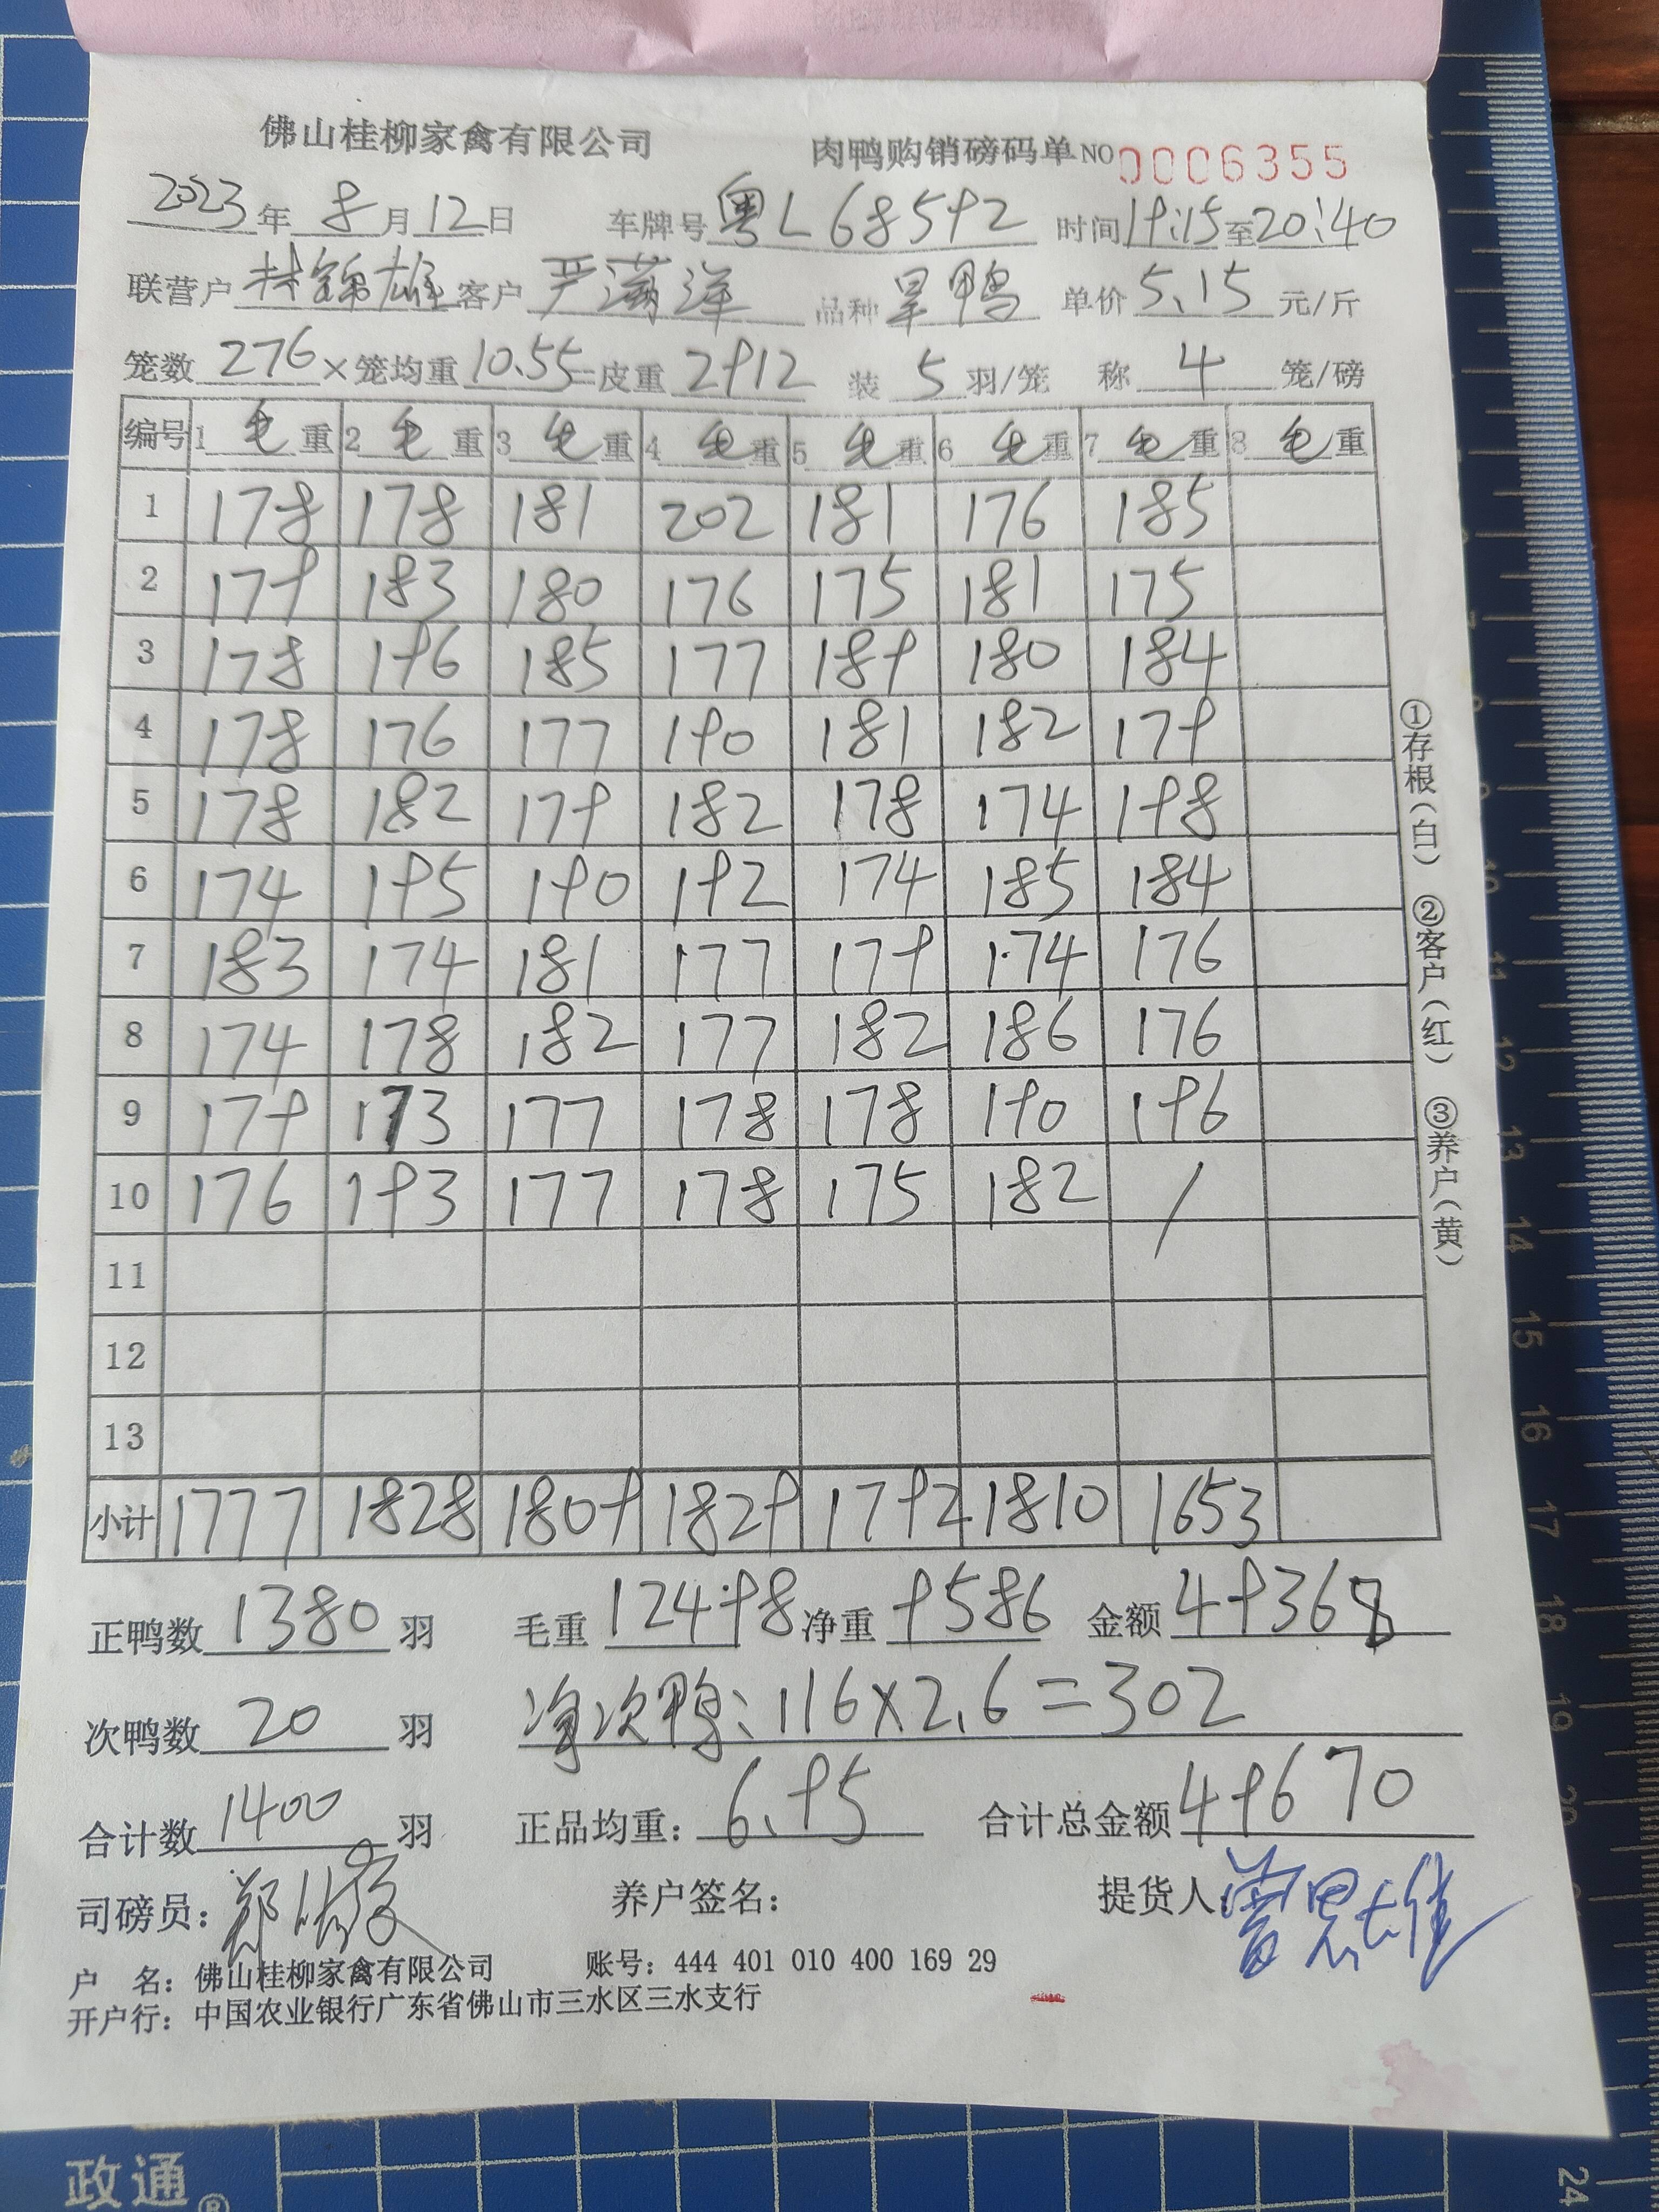 佛山桂柳家禽有限公司 肉鸭购销磅码单 NO 0006355
2023年 8月12日 车牌号 粤L68592 时间19:15至20:40
联营户 林锦雄 客户 严满洋 品种 旱鸭 单价 5.15 元/斤
笼数 276 ×笼均重 10.55=皮重 2912 装 5 羽/笼 称 4 笼/磅
编号 1 毛重 2 毛重 3 毛重 4 毛重 5 毛重 6 毛重 7 毛重 8 毛重
1 178 178 181 202 181 176 185
2 179 183 180 176 175 181 175
3 178 196 185 177 189 180 184
4 178 176 177 190 181 182 179
5 178 182 179 182 178 174 198
6 174 195 190 192 174 185 184
7 183 174 181 177 179 174 176
8 174 178 182 177 182 186 176
9 179 173 177 178 178 190 196
10 176 193 177 178 175 182 /
11
12
13
小计 1777 1828 1809 1829 1792 1810 1653
正鸭数 1380 羽 毛重 12498 净重 9586 金额 49368
次鸭数 20 羽 净次鸭: 116×2.6=302
合计数 1400 羽 正品均重: 6.95 合计总金额 49670
司磅员: 养户签名: 提货人:
户 名: 佛山桂柳家禽有限公司 账号: 444 401 010 400 169 29
开户行: 中国农业银行广东省佛山市三水区三水支行
①存根(白) ②客户(红) ③养户(黄)
政通®
10
11
12
13
14
15
16
17
18
19
20
24